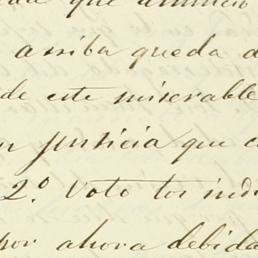 que anuncio
arriba queda a
de este miserable
justicia que
2.º Voto los indi
por ahora debida